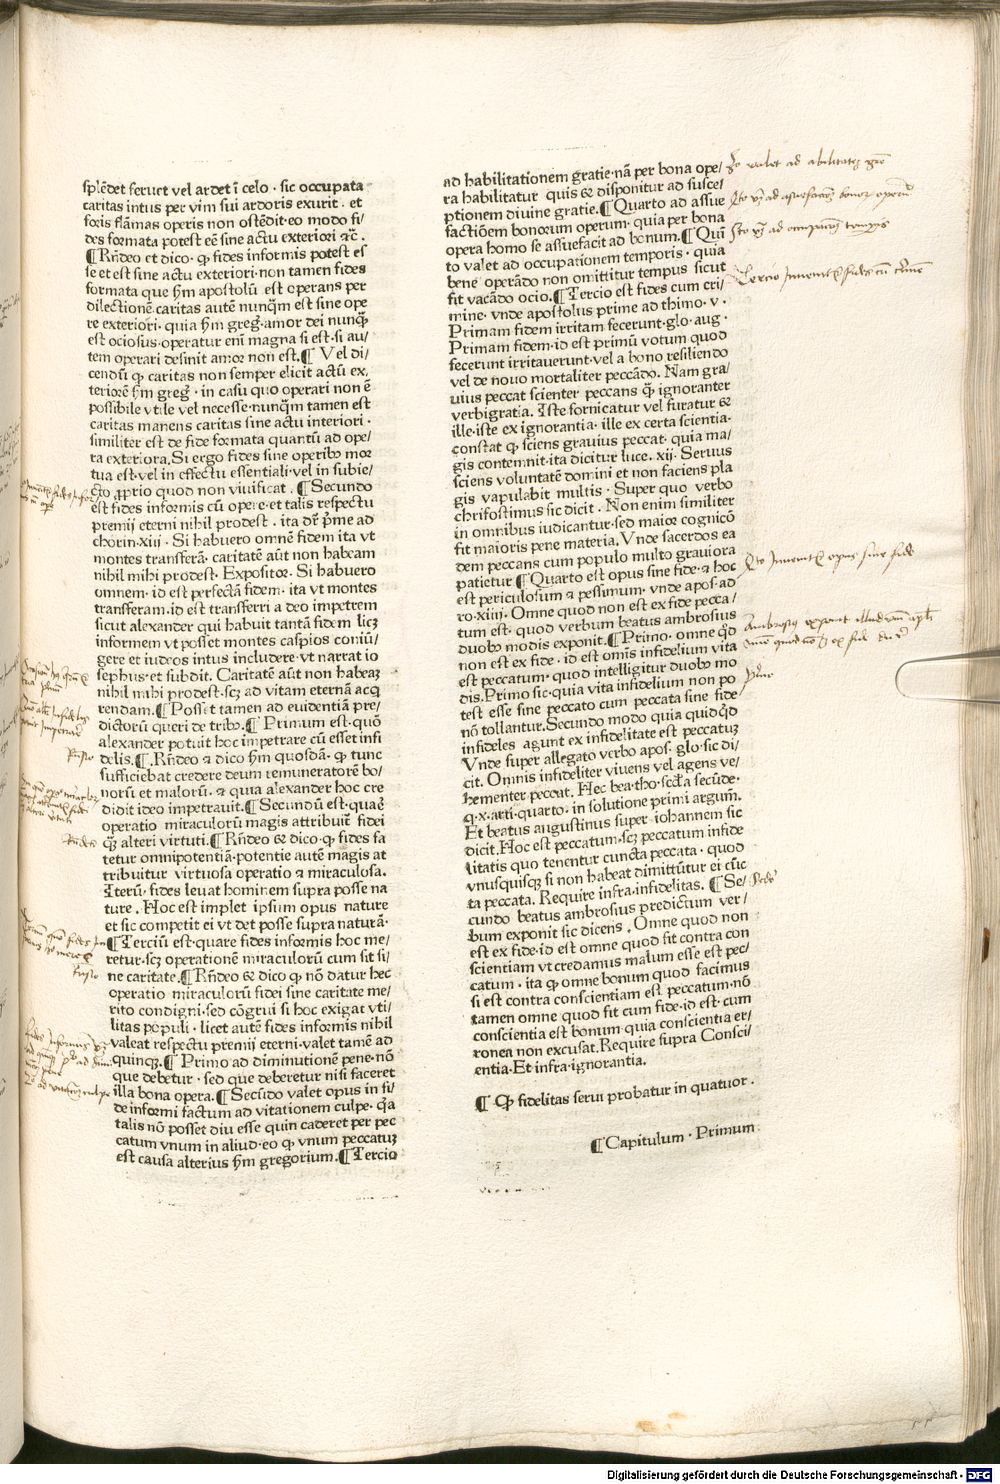 splēdet feruet vel ardet ī celo · sic occupata
caritas intus per vim sui ardoris exurit · et
foris flāmas operis non ostēdit·eo modo fi/
des formata potest eē sine actu exteriori ⁊c̄ .
¶Rn̄deo et dico · ꝙ fides informis potest es
se et est sine actu exteriori·non tamen fides
formata que ſm apostolū est operans per
dilectionē·caritas autē nunq̄m est sine ope
re exteriori·quia ſm greg̃·amor dei nunq̄
est ociosus·operatur enī magna si est·si au/
tem operari desinit amor non est.¶ Vel di/
cendū ꝙ caritas non semper elicit actū ex,
teriorē ſm greg̃ · in casu quo operari non ē
possibile vtile vel necesse·nunq̄m tamen est
caritas manens caritas sine actu interiori ·
similiter est de fide formata quantū ad ope/
ra exteriora. Si ergo fides sine operibꝰ mor
tua est·vel in effectu essentiali·vel in subie/
cto ꝓprio quod non viuificat . ¶Secundo
est fides informis cū opere·et talis respectu
premij eterni nihil prodest . ita dr̄ p̄me ad
chorin·xiij · Si habuero omnē fidem ita vt
montes transferā· caritatē aūt non habeam
nihil mihi prodest· Expositor· Si habuero
omnem·id est perfectā fidem·ita vt montes
transferam·id est transferri a deo impetrem
sicut alexander qui habuit tantā fidem licꝫ
informem vt posset montes caspios coniū/
gere et iudeos intus includere·vt narrat io
sephus·et subdit. Caritatē aūt non habeaꝫ
nihil mihi prodest·scꝫ ad vitam eternā acq
rendam.¶Posset tamen ad euidentiā pre/
dictorū queri de tribꝰ.¶Primum est·quō
alexander potuit hoc impetrare cū esset infi
delis.¶.Rn̄deo ⁊ dico ſm quosdā· ꝙ tunc
sufficiebat credere deum remuneratorē bo/
norū et malorū· ⁊ quia alexander hoc cre
didit ideo impetrauit.¶Secundū est·quaꝰ
operatio miraculorū magis attribuit̄ fidei
qꝫ alteri virtuti.¶Rn̄deo ⁊ dico·ꝙ fides fa
tetur omnipotentiā·potentie autē magis at
tribuitur virtuosa operatio ⁊ miraculosa.
Iterū·fides leuat hominem supra posse na
ture . Hoc est implet ipsum opus nature
et sic competit ei vt det posse supra naturā·
¶Terciū est·quare fides informis hoc me/
retur·scꝫ operationē miraculorū cum sit si/
ne caritate.¶Rn̄deo ⁊ dico ꝙ nō datur hec
operatio miraculorū fidei sine caritate me/
rito condigni·sed cōgrui si hoc exigat vti/
litas populi · licet autē fides informis nihil
valeat respectu premij eterni·valet tamē ad
quinqꝫ.¶ Primo ad diminutionē pene·nō
que debetur · sed que deberetur nisi faceret
illa bona opera.¶Secūdo valet opus in fi/
de informi factum ad vitationem culpe· q̄a
talis nō posset diu esse quin caderet per pec
catum vnum in aliud·eo ꝙ vnum peccatuꝫ
est causa alterius ſm gregorium.¶Tercio
ad habilitationem gratie·nā per bona ope/
ra habilitatur quis ⁊ disponitur ad suscei
ptionem diuine gratie.¶Quarto ad assue
factiōem bonorum operum· quia per bona
opera homo se assuefacit ad bonum.¶Quī
to valet ad occupationem temporis · quia
bene operādo non omittitur tempus sicut
fit vacādo ocio.¶Tercio est fides cum cri/
mine· vnde apostolus prime ad thimo · v ·
Primam fidem irritam fecerunt·glo· aug ·
Primam fidem·id est primū votum quod
fecerunt irritauerunt·vel a bono resiliendo
vel de nouo mortaliter peccādo. Nam gra/
uius peccat scienter peccans q̄ ignoranter
verbigratia. Iste fornicatur vel furatur ⁊
ille·iste ex ignorantia· ille ex certa scientia·
constat ꝙ sciens grauius peccat· quia ma/
gis contemnit·ita dicitur luce· xij· Seruus
sciens voluntatē domini et non faciens pla
gis vapulabit multis · Super quo verbo
chrisostimus sic dicit . Non enim similiter
in omnibus iudicantur·sed maior cognicō
fit maioris pene materia. Vnde sacerdos ea
dem peccans cum populo multo grauiora
patietur ¶Quarto est opus sine fide· ⁊ hoc
est periculosum ⁊ pessimum· vnde apos·ad
ro·xiiij· Omne quod non est ex fide pecca/
tum est· quod verbum beatus ambrosius
duobꝰ modis exponit.¶Primo· omne qd̄
non est ex fide · id est omīs infidelium vita
est peccatum· quod intelligitur duobꝰ mo
dis. Primo sic·quia vita infidelium non po
test esse sine peccato cum peccata sine fide
nō tollantur. Secundo modo quia quidqd̄
infideles agunt ex infidelitate est peccatuꝫ
Vnde super allegato verbo apos· glo·sic di/
cit. Omnis infideliter viuens vel agens ve/
hementer peccat. Hec bea·tho·scd̄a secūde·
q·x·arti·quarto· in solutione primi argum̄.
Et beatus augustinus super iohannem sic
dicit. Hoc est peccatum·scꝫ peccatum infide
litatis quo tenentur cuncta peccata · quod
vnusquisqꝫ si non habeat dimittūtur ei cūc
ta peccata. Require infra·infidelitas. ¶Se/
cundo beatus ambrosius predictum ver/
bum exponit sic dicens . Omne quod non
est ex fide·id est omne quod fit contra con
scientiam vt credamus malum esse est pec/
catum · ita ꝙ omne bonum quod facimus
si est contra conscientiam est peccatum·nō
tamen omne quod fit cum fide·id est· cum
conscientia est bonum· quia conscientia er/
ronea non excusat. Require supra Consci/
entia·Et infra·ignorantia.
¶ Ꝙ fidelitas serui probatur in quatuor .
¶Capitulum · Primum
Digitalisierung gefördert durch die Deutsche Forschungsgemeinschaft - DFG